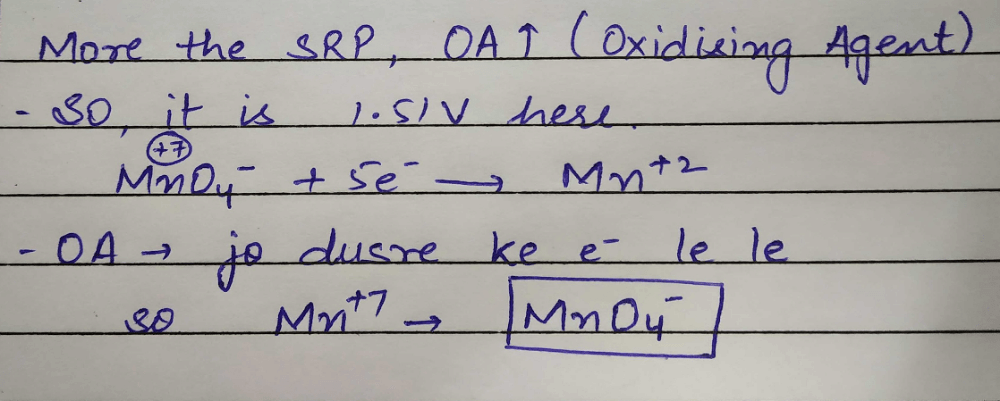 More the SRP, OA↑ (Oxidising Agent)
- SO, it is 1.51V here.
+7
MnO4⁻ + 5e⁻ → Mn⁺²
- OA → jo dusre ke e⁻ le le
so Mn⁺⁷ → MnO4⁻